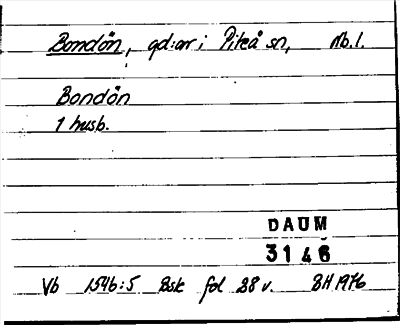 Bondön, gd:ar i Piteå sn, Nb.l.
Bondön
1 husb.
DAUM
3146
Vb 1546:5 Bsk fol 28 v. BH 1976